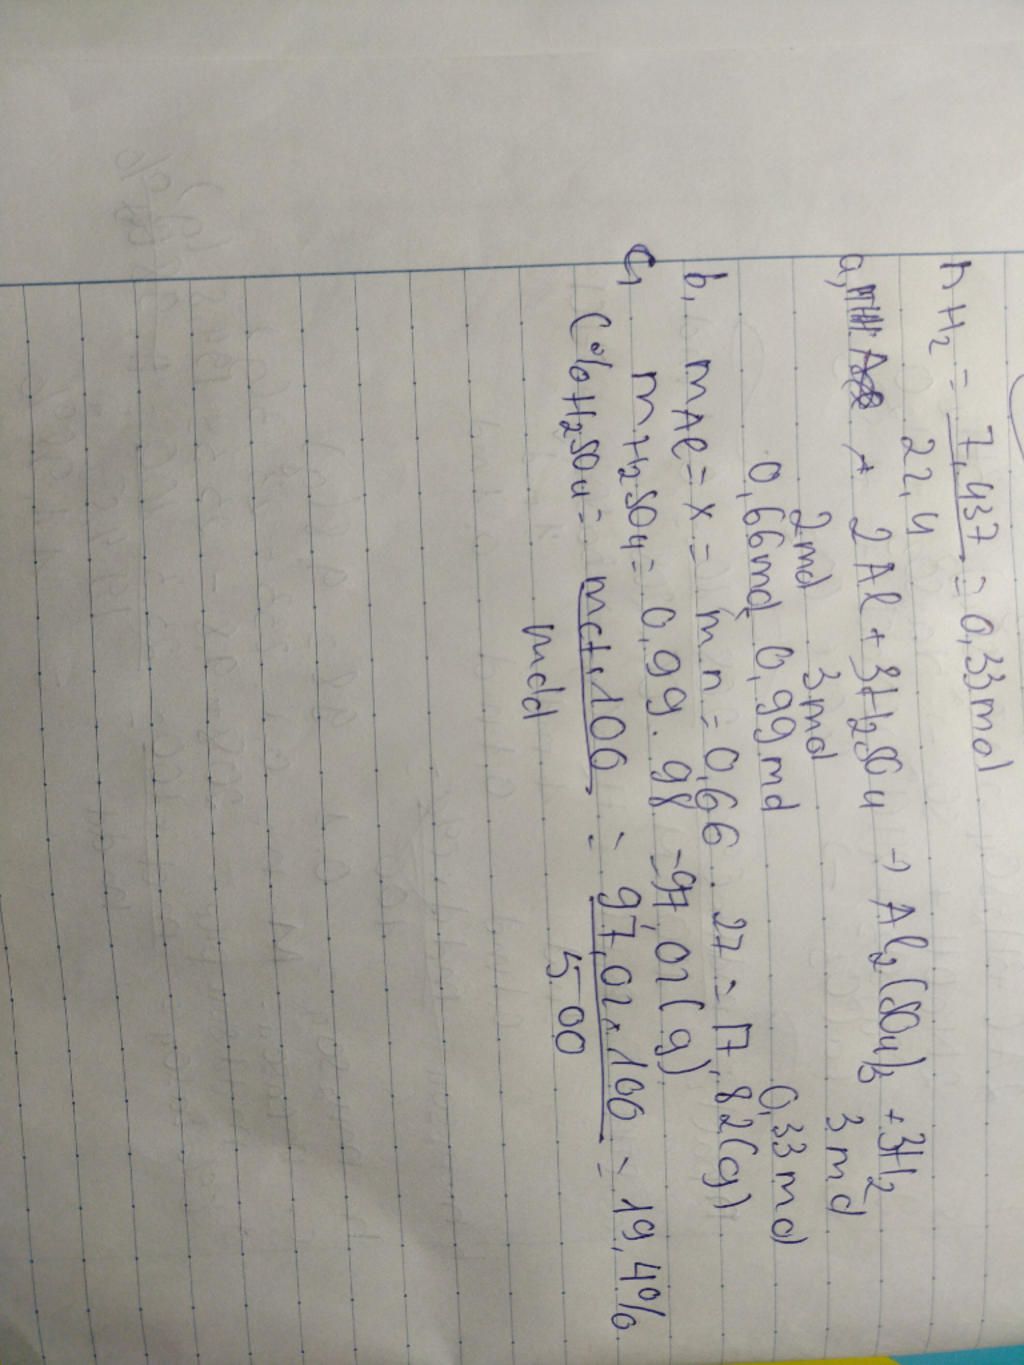 nH₂ = 7,437 = 0,33mol
22,4
a, 2Al + 3H₂SO₄ → Al₂(SO₄)₃ + 3H₂
2mol 3mol 3mol
0,66mol 0,99mol 0,33mol
b, mAl = x = m n = 0,66 . 27 = 17,82(g)
c, mH₂SO₄ = 0,99 . 98 = 97,02(g)
C%H₂SO₄ = mct.100 = 97,02.100 = 19,4%
mdd 500